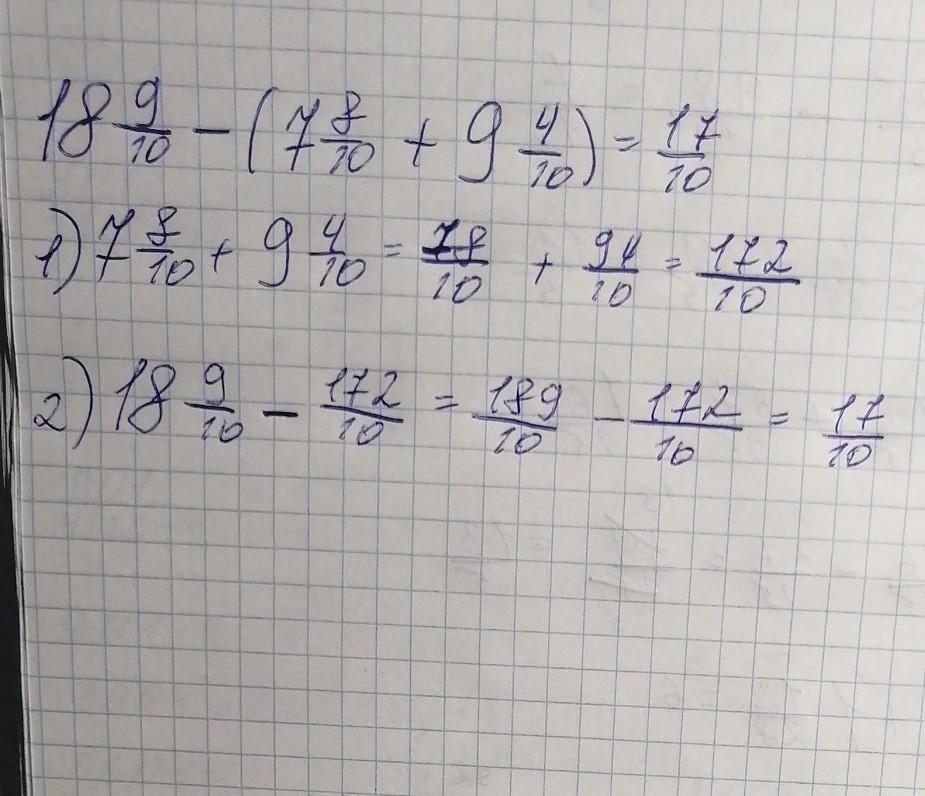 18 9/10 - (7 8/10 + 9 4/10) = 17/10
1) 7 8/10 + 9 4/10 = 78/10 + 94/10 = 172/10
2) 18 9/10 - 172/10 = 189/10 - 172/10 = 17/10